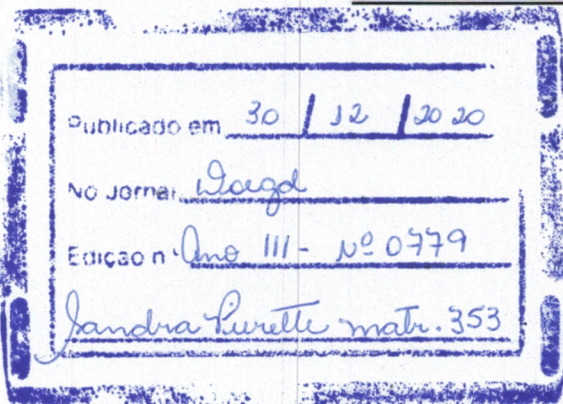 Publicado em 30 / 12 / 2020
No Jornal
Edição nº Ano III - Nº 0779
Sandra matr. 353